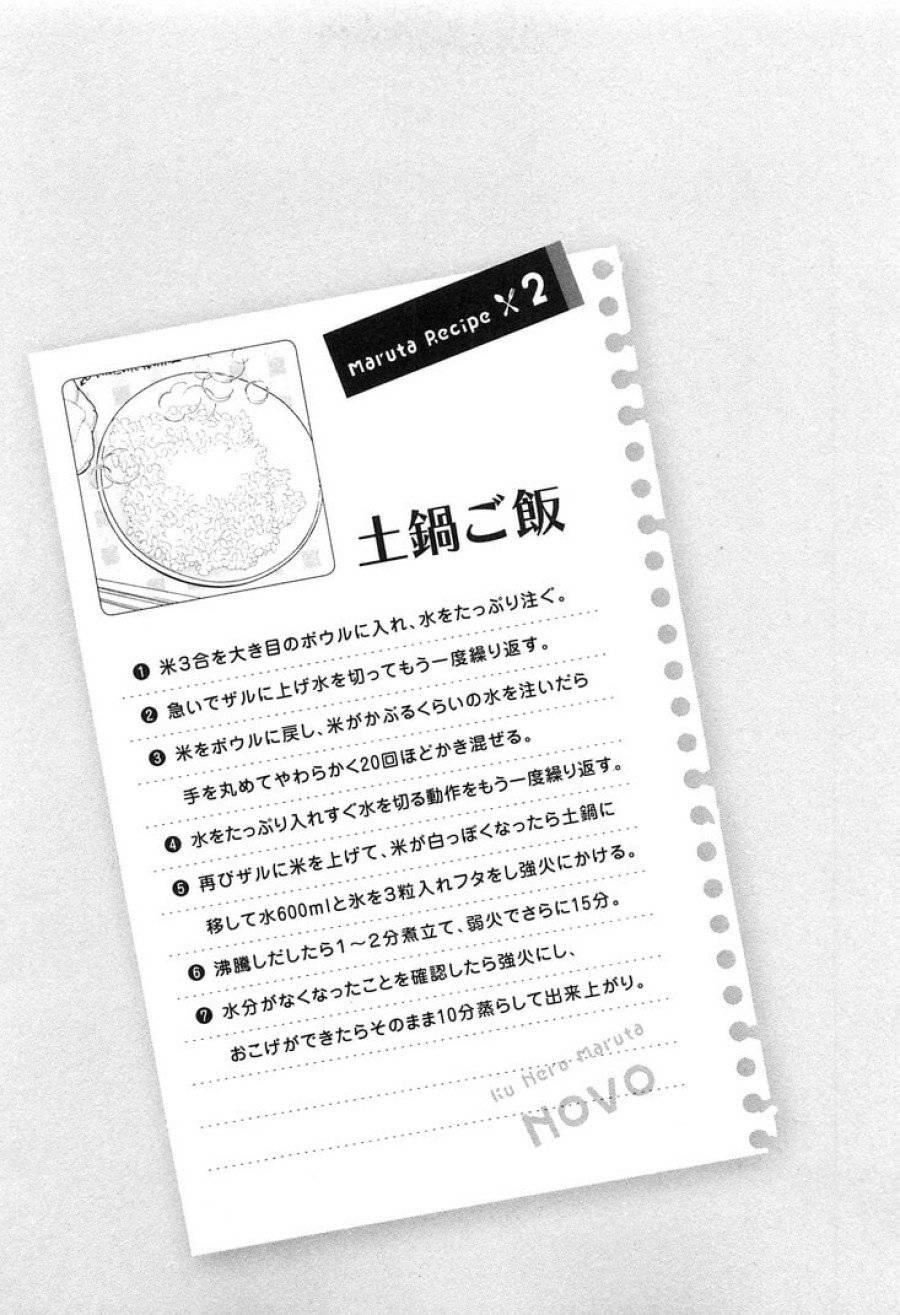 Maruta Recipe 2
土鍋ご飯
❶ 米3合を大き目のボウルに入れ、水をたっぷり注ぐ。
❷ 急いでザルに上げ水を切ってもう一度繰り返す。
❸ 米をボウルに戻し、米がかぶるくらいの水を注いだら
手を丸めてやわらかく20回ほどかき混ぜる。
❹ 水をたっぷり入れすぐ水を切る動作をもう一度繰り返す。
❺ 再びザルに米を上げて、米が白っぽくなったら土鍋に
移して水600mlと氷を3粒入れフタをし強火にかける。
❻ 沸騰しだしたら1～2分煮立て、弱火でさらに15分。
❼ 水分がなくなったことを確認したら強火にし、
おこげができたらそのまま10分蒸らして出来上がり。
Ku Hero Maruta
NOVO